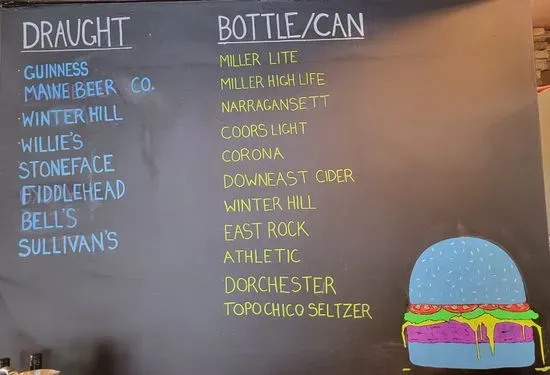 DRAUGHT
· GUINNESS
MAINE BEER CO.
· WINTER HILL
· WILLIE'S
STONEFACE
FIDDLEHEAD
BELL'S
SULLIVAN'S
BOTTLE/CAN
MILLER LITE
MILLER HIGH LIFE
NARRAGANSETT
COORS LIGHT
CORONA
DOWNEAST CIDER
WINTER HILL
EAST ROCK
ATHLETIC
DORCHESTER
TOPO CHICO SELTZER